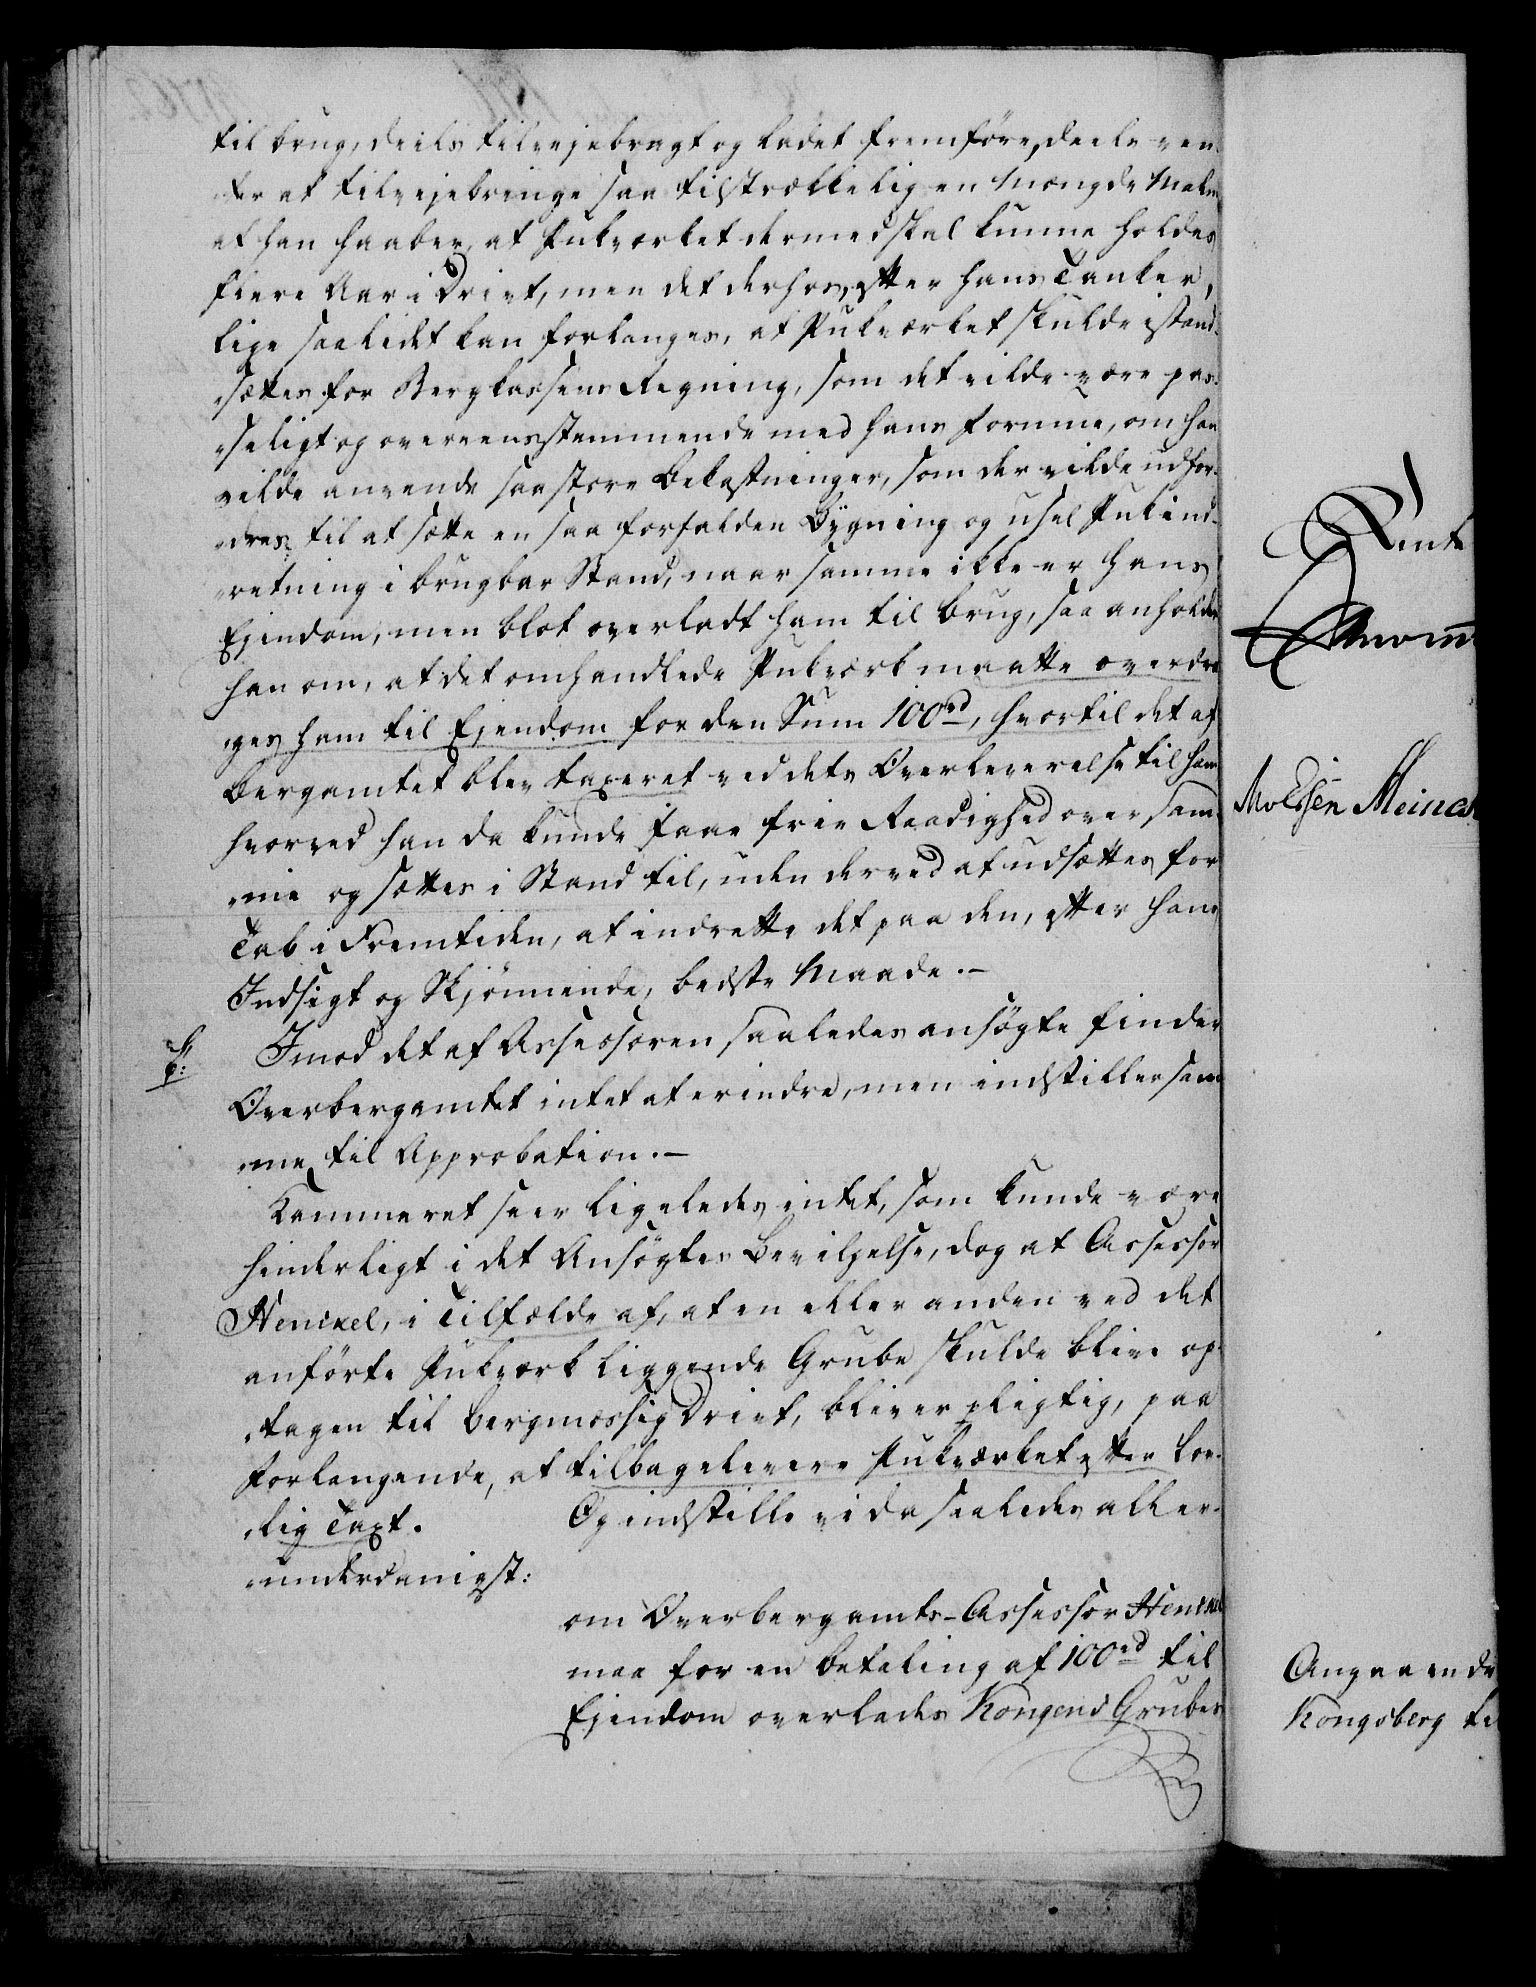 til brug, deels tilvejebragt og ladet fremføre, deels ven-
ter at tilvejebringe saa tilstrækkelig en Mængde Malm
at han haaber, at Pukværket dermed skal kunne holdes
flere Aar i Drivt, men det derhos, efter hans Tanker,
lige saalidt kan forlanges, at Pukværket skulde istand-
sættes for Bergkassens Regning, som det vilde være pas-
seligt og overeensstemmende med hans Formue, om han
vilde anvende saa store Bekostninger, som der vilde udfor-
dres til at sætte en saa forfalden Bygning og usel Pukind-
retning i brugbar Stand, naar samme ikke er hans
Ejendom, men blot overladt ham til brug, saa anholder
han om, at det omhandlede Pukværk maatte overdra-
ges ham til Ejendom for den Sum 100 rd, hvortil det af
Bergamtet blev taxeret ved dets Overleverelse til ham
hvorved han da kunde faae frie Raadighed over sam-
me og sættes i Stand til, uden derved at udsættes for
Tab i Fremtiden, at indrette det paa den, efter hans
Indsigt og Skjønnende, bedste Maade.-
Imod det af Assessoren saaledes ansøgte finder
Overbergamtet intet at erindre, men indstiller sam-
me til Approbation.-
Kammeret seer ligeledes intet, som kunde være
hinderligt i det Ansøgtes Bevilgelse, dog at Assessor
Henckel, i Tilfælde af, at en eller anden ved det
anførte Pukværk liggende Grube skulde blive op-
tagen til bergmæssig Drivt, bliver pligtig, paa
Forlangende, at tilbagelevere Pukværket efter lov-
lig Taxt.
Og indstille vi da saaledes aller-
underdanigst:
om Overbergamts-Assessor Henckel
maa for en Betaling af 100 rd til
Ejendom overlades Kongens Grubes
Rente
Meinca
Angaaende
Kongsberg